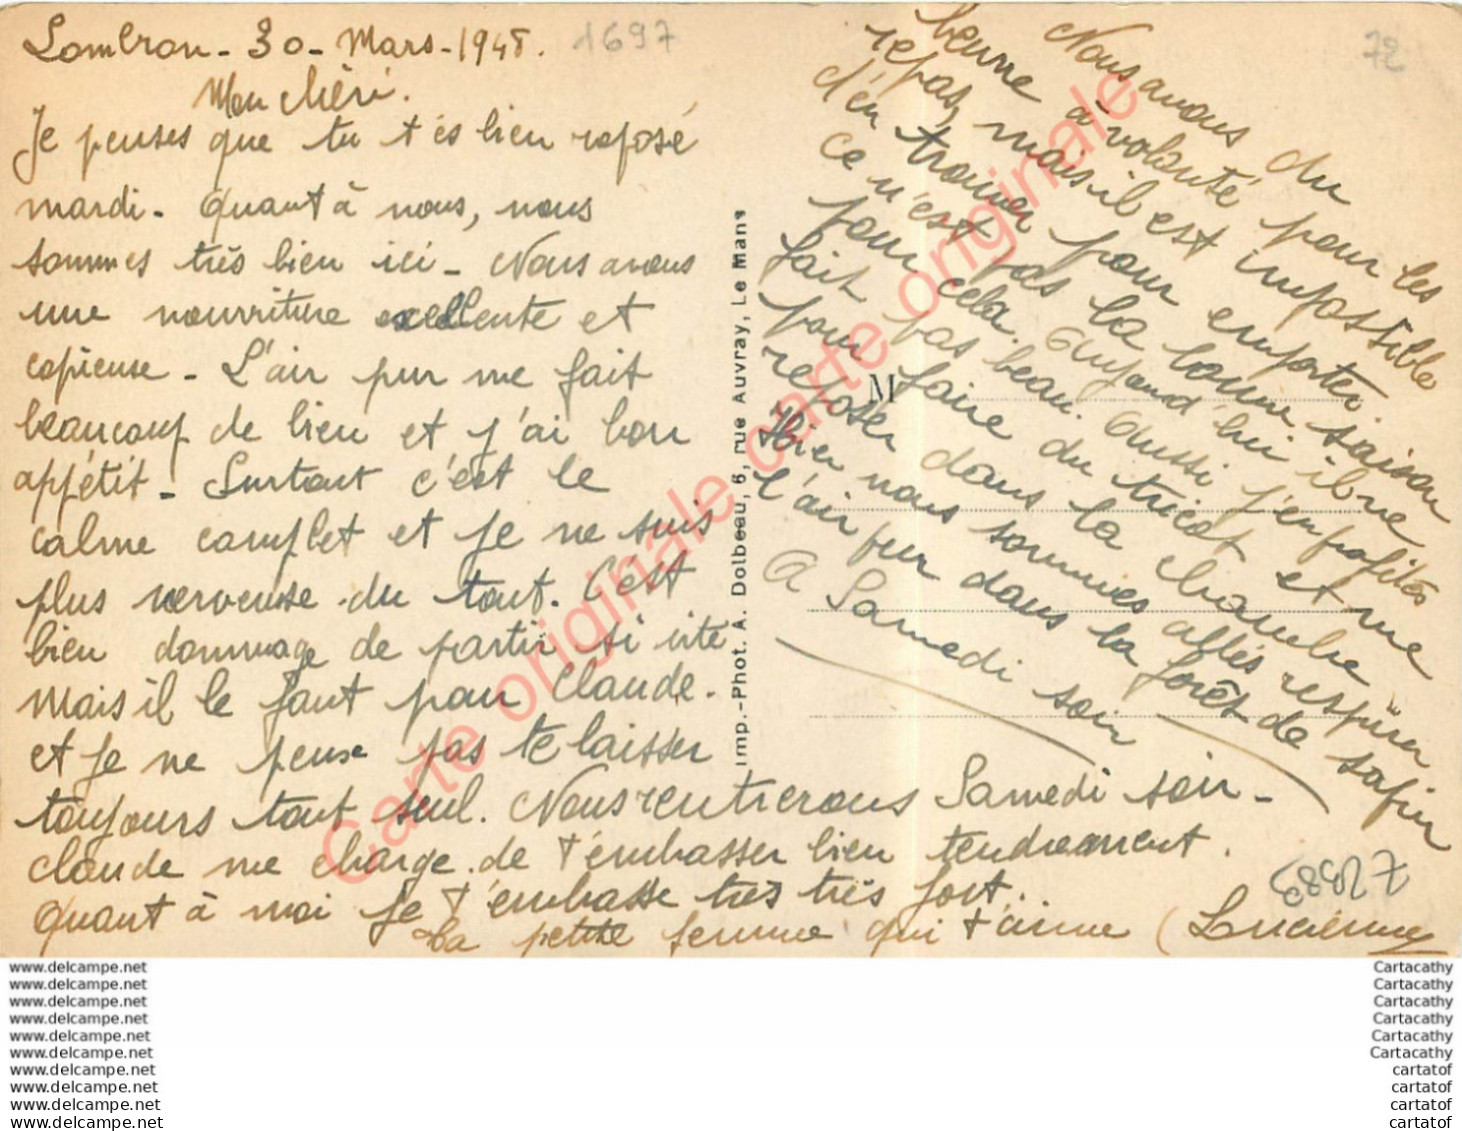 Lombron - 30 - Mars - 1948. 1697
Mon chéri.
Je penses que tu t'es bien reposé
mardi. Quant à nous, nous
sommes très bien ici - Nous avons
une nourriture excellente et
copieuse - L'air pur me fait
beaucoup de bien et j'ai bon
appétit - Surtout c'est le
calme complet et je ne suis
plus nerveuse du tout. C'est
bien dommage de partir si vite
Mais il le faut pour Claude.
et je ne peuse pas te laisser
toujours tout seul. Nous rentrerons Samedi soir -
Claude me charge de t'embrasser bien tendrement.
Quant à moi je t'embrasse très très fort..
La petite femme qui t'aime (Lucienne
72
Nous avons du
beurre à volonté pour les
repas, mais il est impossible
d'en trouver pour emporter.
Ce n'est pas la bonne saison
pour cela. Aujourd'hui il ne
fait pas beau. Aussi j'en profites
pour faire du tricot et me
reposer dans la chambre
Hier nous sommes allés respirer
l'air pur dans la forêt de sapin
A Samedi soir
M
Imp.-Phot. A. Dolbeau, 6, rue Auvray, Le Mans
Carte originale carte originale
www.delcampe.net
www.delcampe.net
www.delcampe.net
www.delcampe.net
www.delcampe.net
www.delcampe.net
www.delcampe.net
www.delcampe.net
www.delcampe.net
www.delcampe.net
Cartacathy
Cartacathy
Cartacathy
Cartacathy
Cartacathy
Cartacathy
cartatof
cartatof
cartatof
cartatof